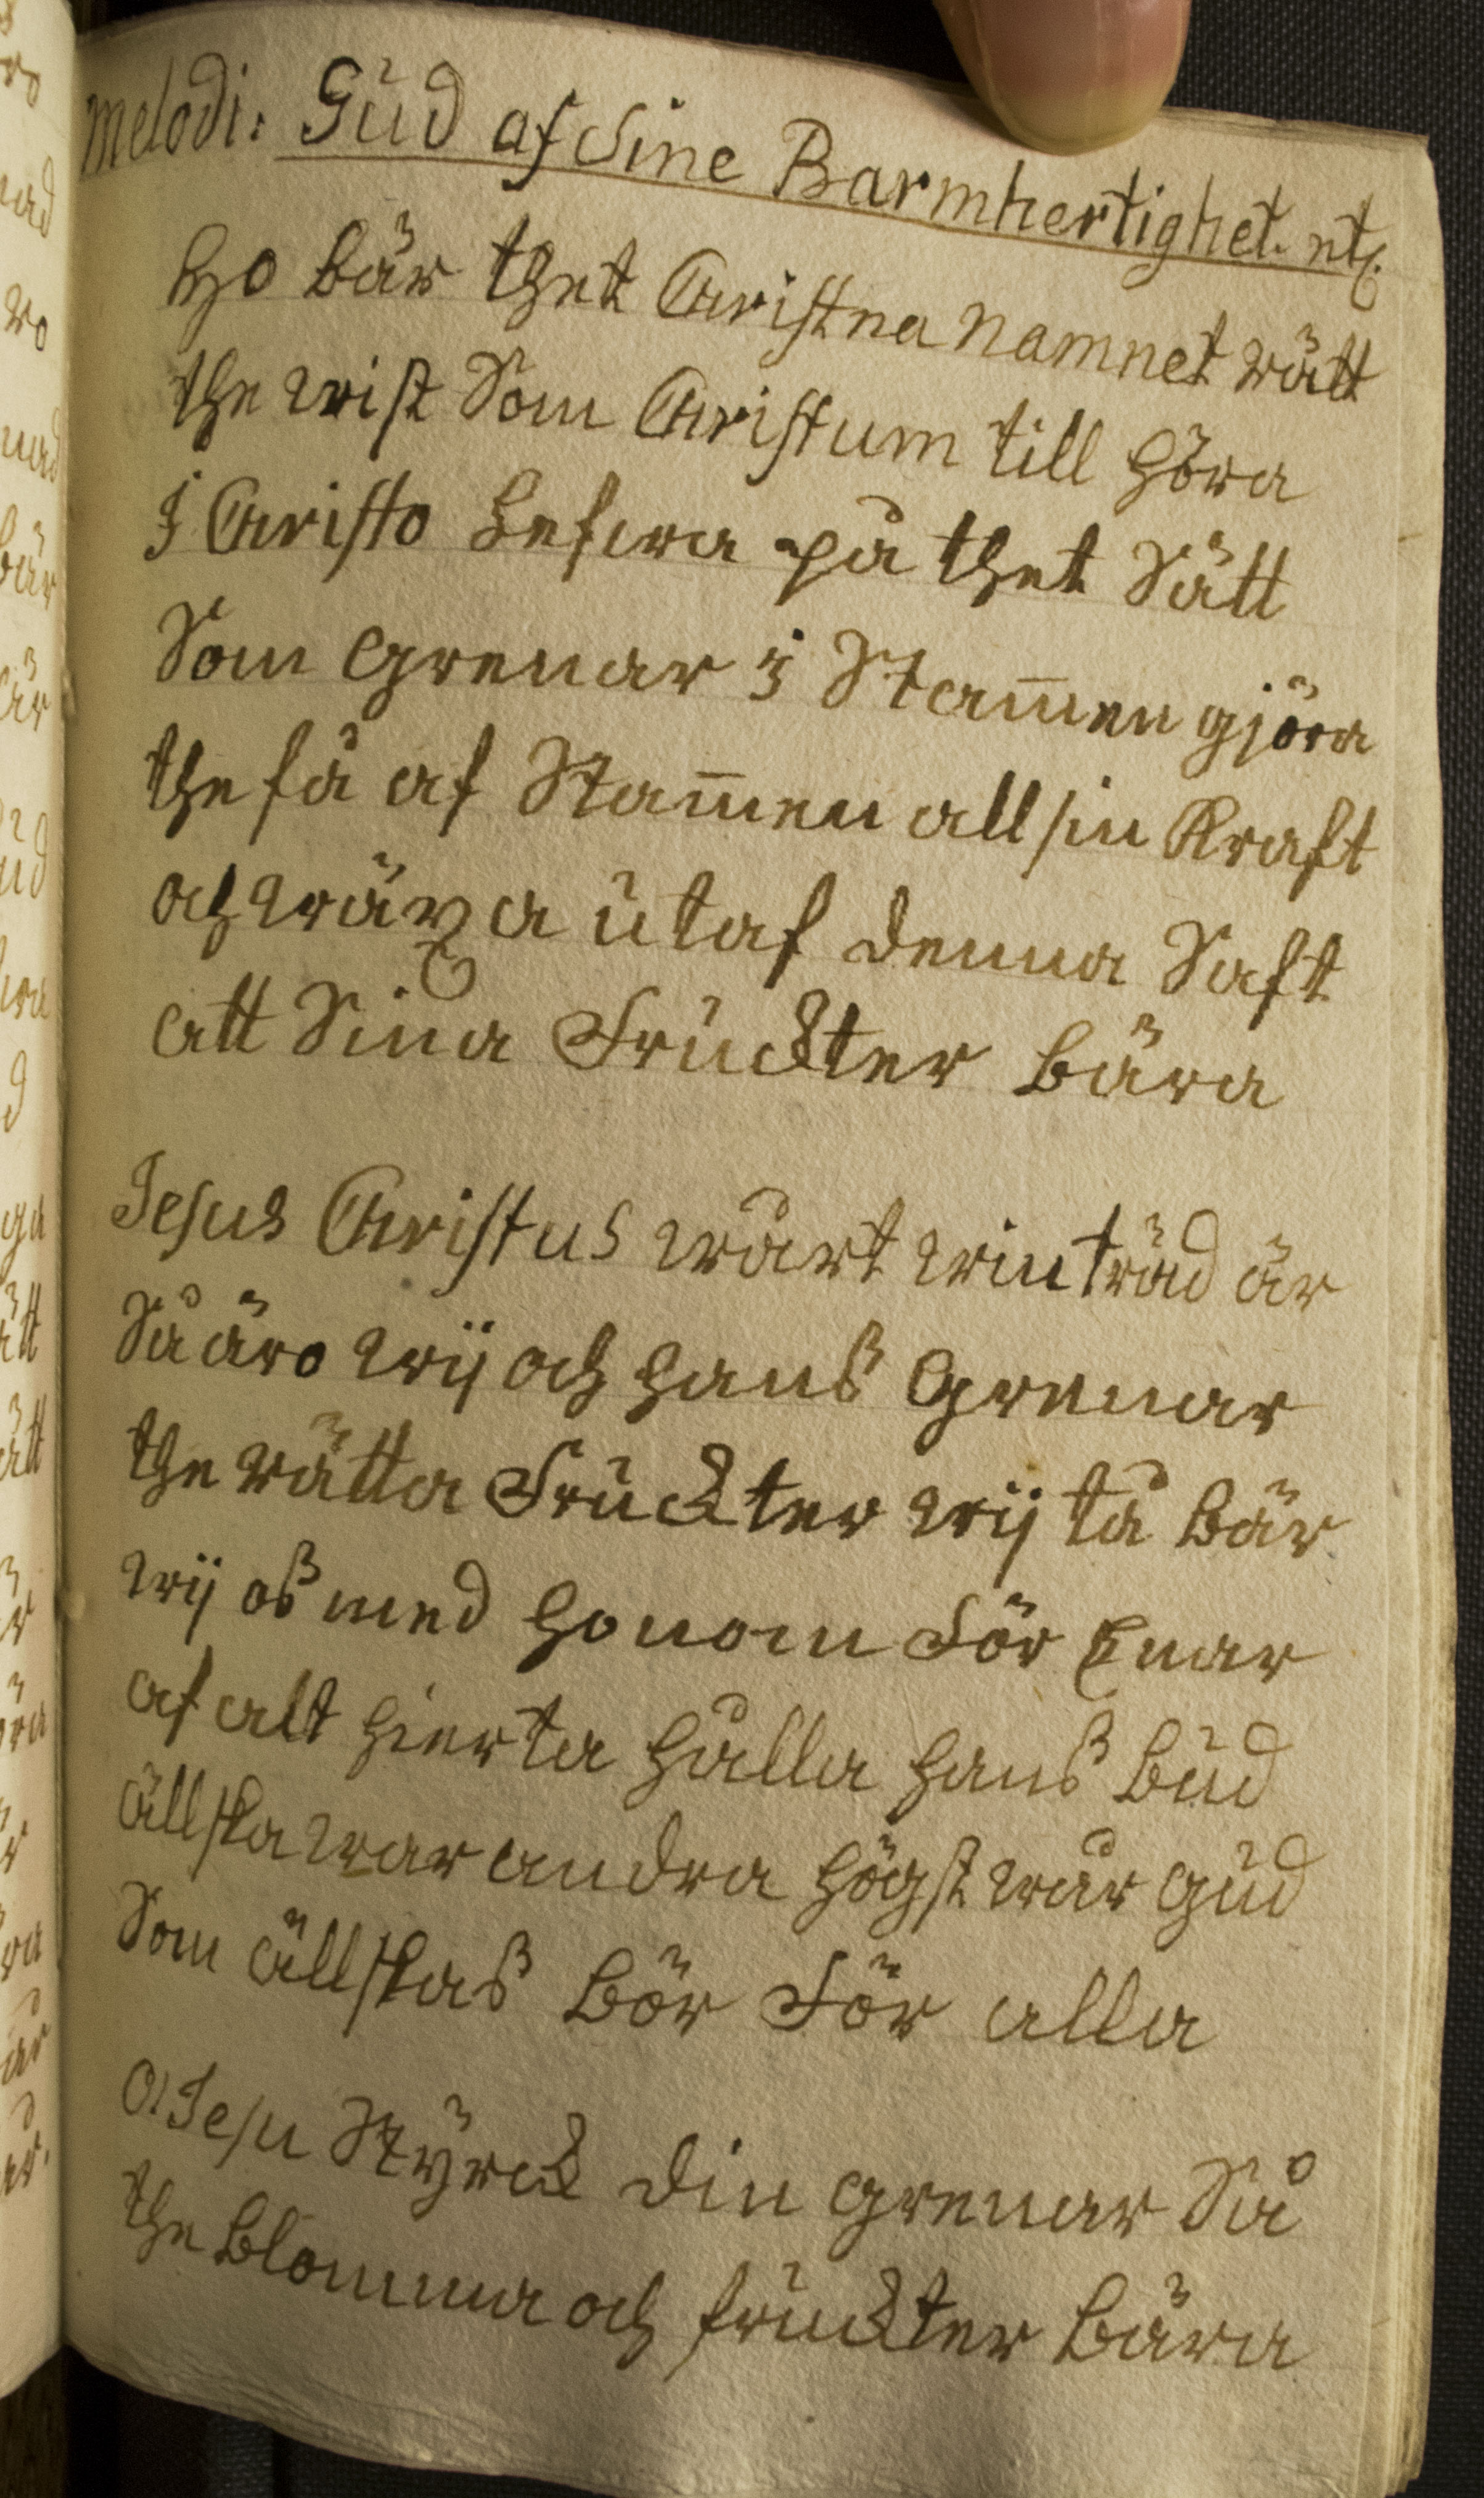 Melodi: Gud af Sine Barmhertighet. etc.
Ho bär thet Christna namnet rätt
the wist Som Christum till höra
i Christo Lefwa på thet Sätt
Som Grenar i Stam̅en gjöra
the få af Stam̅en all sin Kraft
och wäxa utaf denna Saft
att Sina Früchter bära
Jesus Christus wårt winträd är
Så äro wij och hans Grenar
the rätta Früchter wij tå bär
wij oß med honom För Enar
af alt hierta hålla hans bud
älska war andra högst wår Gud
Som älskas bör För alla
O! Jesu Styrck din grenar Så
the blomma och früchter bära